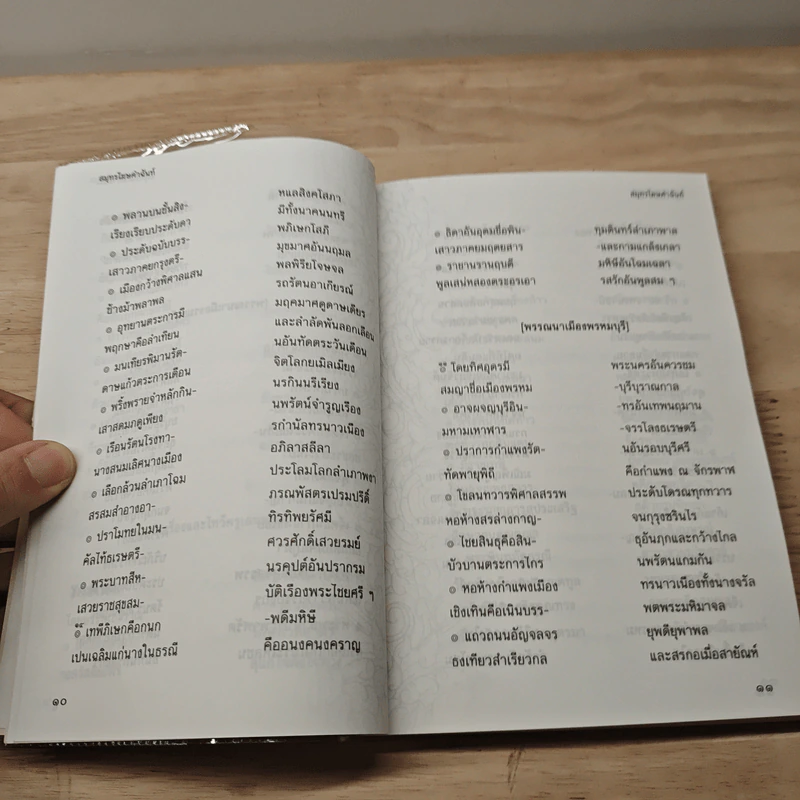 สมุทรโฆษคำฉันท์
๏ พลานบนชั้นสิง- หแลสิงคโสภา
เรียงเรียบประดับดา มีทั้งนาคนนทรี
๏ ประดับฉบับบรร- พภิเษกโสภี
เสาวภาคยกรุงตรี- มุขมาศอันนฤมล
๏ เมืองกว้างพิศาลแสน พลพิริยโจษจล
ช้างม้าพลาพล รถรัตนอาเกียรณ์
๏ อุทยานตระการมี มฤคมาศดูดาษเดียร
พฤกษาคือลำเทียน และลำลัดพันลอกเลือน
๏ มนเทียรพิมานรัต- นอันทัดตระวันเดือน
ดาษแก้วตระการเตือน จิตโลกยเมิลเมียง
๏ พริ้งพรายจำหลักกิน- นรกินนรีเรียง
เสาสดมภดูเพียง นพรัตน์จำรูญเรือง
๏ เรือนรัตนโรงทา- รกำนัลทรนาวเนือง
นางสนมเลิศนางเมือง อภิลาสลีลา
๏ เลือกล้วนลำเภาโฉม ประโลมโลกลำเภาพงา
สรสมสำอางอา- ภรณพัสตรเปรมปรีดิ์
๏ ปราโมทยในมน- ทิรทิพยรัศมี
คัลไท้ธเรษตรี- ศวรศักดิ์เสวยรมย์
๏ พระบาทสีห- นรคุปต์อันปรากรม
เสวยราชสุขสม- บัติเรืองพระไชยศรี ฯ
๏ เทพีภิเษกคือกนก -พดีมหิษี
เปนเฉลิมแก่นางในธรณี คืออนงคนงคราญ
๑๐
สมุทรโฆษคำฉันท์
๏ ธิดาอันอุดมชื่อพิน- ทุมดินทร์ลำเภาพาล
เสาวภาคยมฤตยสาร -และกามแกล้งเกลา
๏ รายานรานฤบดี มหิษีอันโฉมเฉลา
พูลเสน่หสองตระอรเอา รสรักอันพูลสม ฯ
[พรรณนาเมืองพรหมบุรี]
๏ โดยทิศอุดรมี พระนครอันควรชม
สมญาชื่อเมืองพรหม -บุรีบุราณกาล
๏ อาจผจญบุรีอิน- -ทรอันเทพนฤมาน
มหามเหาฬาร -จรรโลงธเรษตรี
๏ ปราการกำแพงรัต- นอันรอบบุรีศรี
ทัดพายุพิถี คือกำแพง ณ จักรพาฬ
๏ โขลนทวารพิศาลสรรพ ประดับโดรณทุกทวาร
หอห้างสรล่างกาญ- จนกุรุงชรินไร
๏ ไชยสินธุคือสิน- ธุอันฦกและกว้างไกล
บัวบานตระการไกร นพรัตนแกมกัน
๏ หอห้างกำแพงเมือง ทรนาวเนืองทั้งนางจรัล
เชิงเทินคือเนินบรร- พตพระมหิมาจล
๏ แถวถนนอัญจลจร ยุพดียุพาพล
ธงเทียวสำเรียวกล และสรกอเมื่อสายัณห์
๑๑